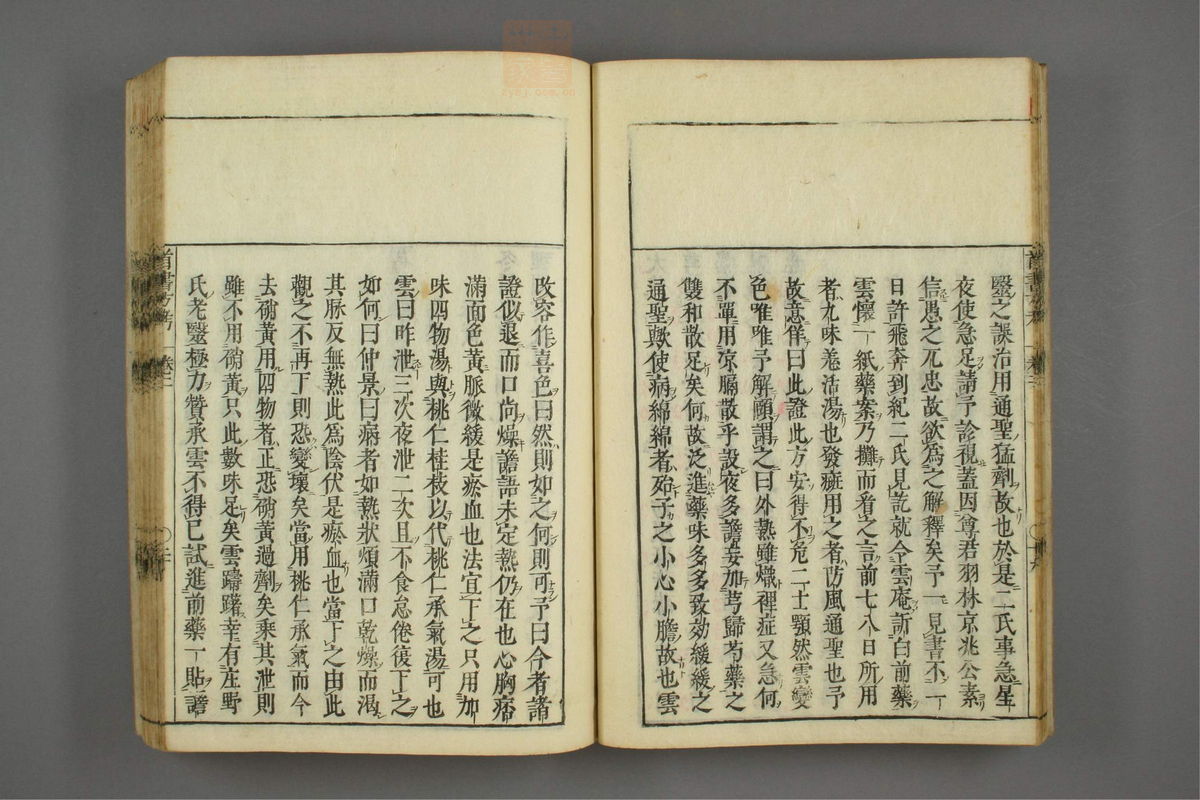 醫之誤治用通聖猛劑故也於是二氏事急星
夜使急足請予診視蓋因尊君羽林京兆公素
信愚之兀忠故欲為之解釋矣予一見書不一
日許飛奔到紀二氏見訖就令雲庵訴白前藥
雲懷一紙藥案乃攤而看之言前七八日所用
者九味羗活湯也發癍用之者防風通聖也予
故意佯曰此證此方安得不危二士顎然雲變
色唯唯予解頤謂之曰外熱雖熾裡症又急何
不單用凉膈散乎設夜多譫妄加芎歸芍藥之
雙和散足矣何故泛進藥味多多致効緩緩之
通聖歟使病綿綿者殆子之小心小膽故也雲
改容作喜色曰然則如之何則可予曰今者諸
證似退而口尚燥譫語未定熱仍在也心胸痞
滿面色黃脈微緩是瘀血也法宜下之只用加
味四物湯與桃仁桂枝以代桃仁承氣湯可也
雲曰昨泄三次夜泄二次且不食怠倦復下之
如何曰仲景曰病者如熱狀煩滿口乾燥而渴
其脉反無熱此為陰伏是瘀血也當下之由此
觀之不再下則恐變壞矣當用桃仁承氣而今
去硝黃用四物者正恐硝黃過劑矣乘其泄則
雖不用硝黃只此數味足矣雲躊躇幸有庄野
氏老醫極力贊承雲不得已試進前藥一貼譫